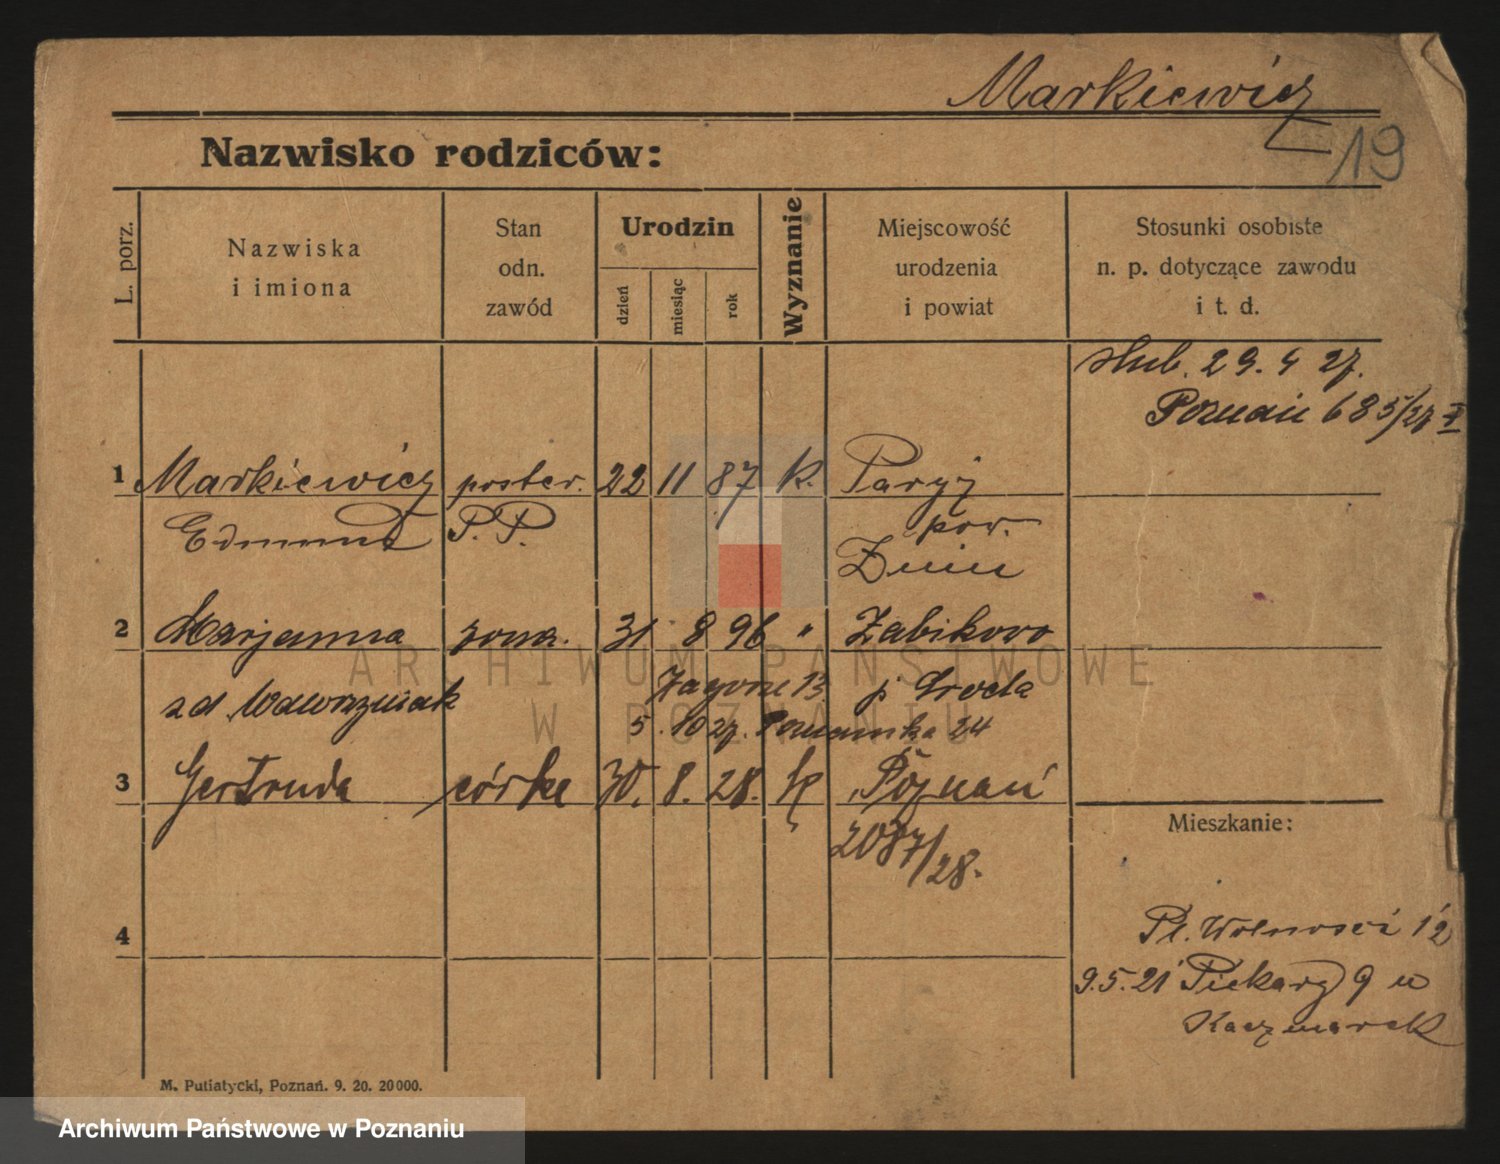 Markiewicz
19
Nazwisko rodziców:
L. porz.
Nazwiska
i imiona
Stan
odn.
zawód
Urodzin
dzień
miesiąc
rok
Wyznanie
Miejscowość
urodzenia
i powiat
Stosunki osobiste
n. p. dotyczące zawodu
i t. d.
ślub. 29. 4 27.
Poznań 685/27 I
1 Markiewicz poster. 22 11 87 k. Paryż
Edmund P. P. pow.
Żnin
2 Marjanna żona. 31 8 96 " Żabikowo
zd Wawrzyniak 13 p Środa
5. 10 27. Poznańska 24
3 Gertruda córka 30. 8. 28. k Poznań
2087/28.
Mieszkanie:
4
Pl. Wolności 12
9.5.21 Piekary 9 u
Kaczmarek
M. Putiatycki, Poznań. 9. 20. 20000.
ARCHIWUM PAŃSTWOWE
W POZNANIU
Archiwum Państwowe w Poznaniu